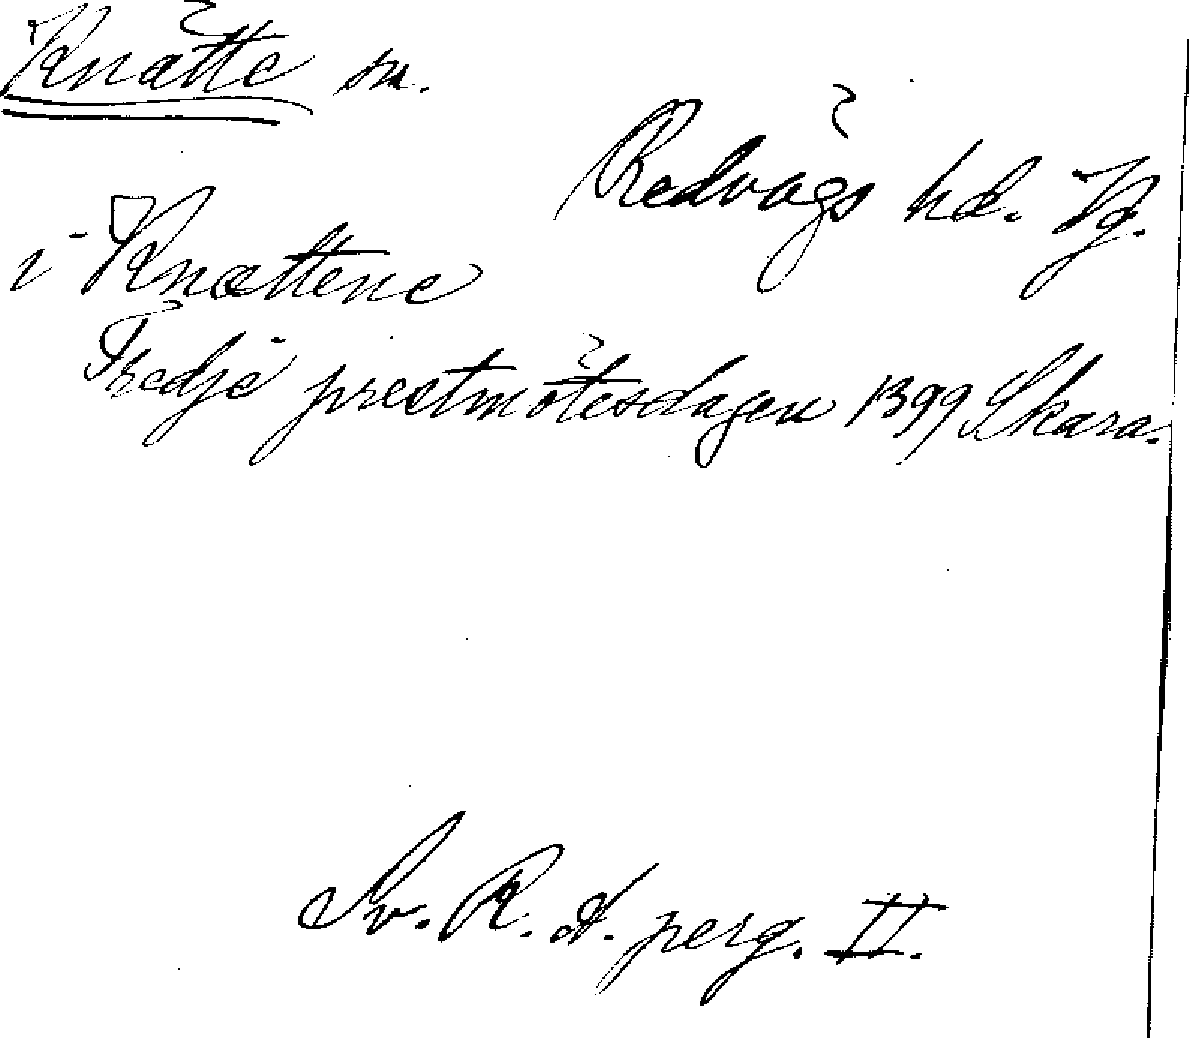 Knätte sn.
Redvägs hd. Vg.
i Knættene
Tredje prestmötesdagen 1399 Skara.
Sv. R. A. perg. II.